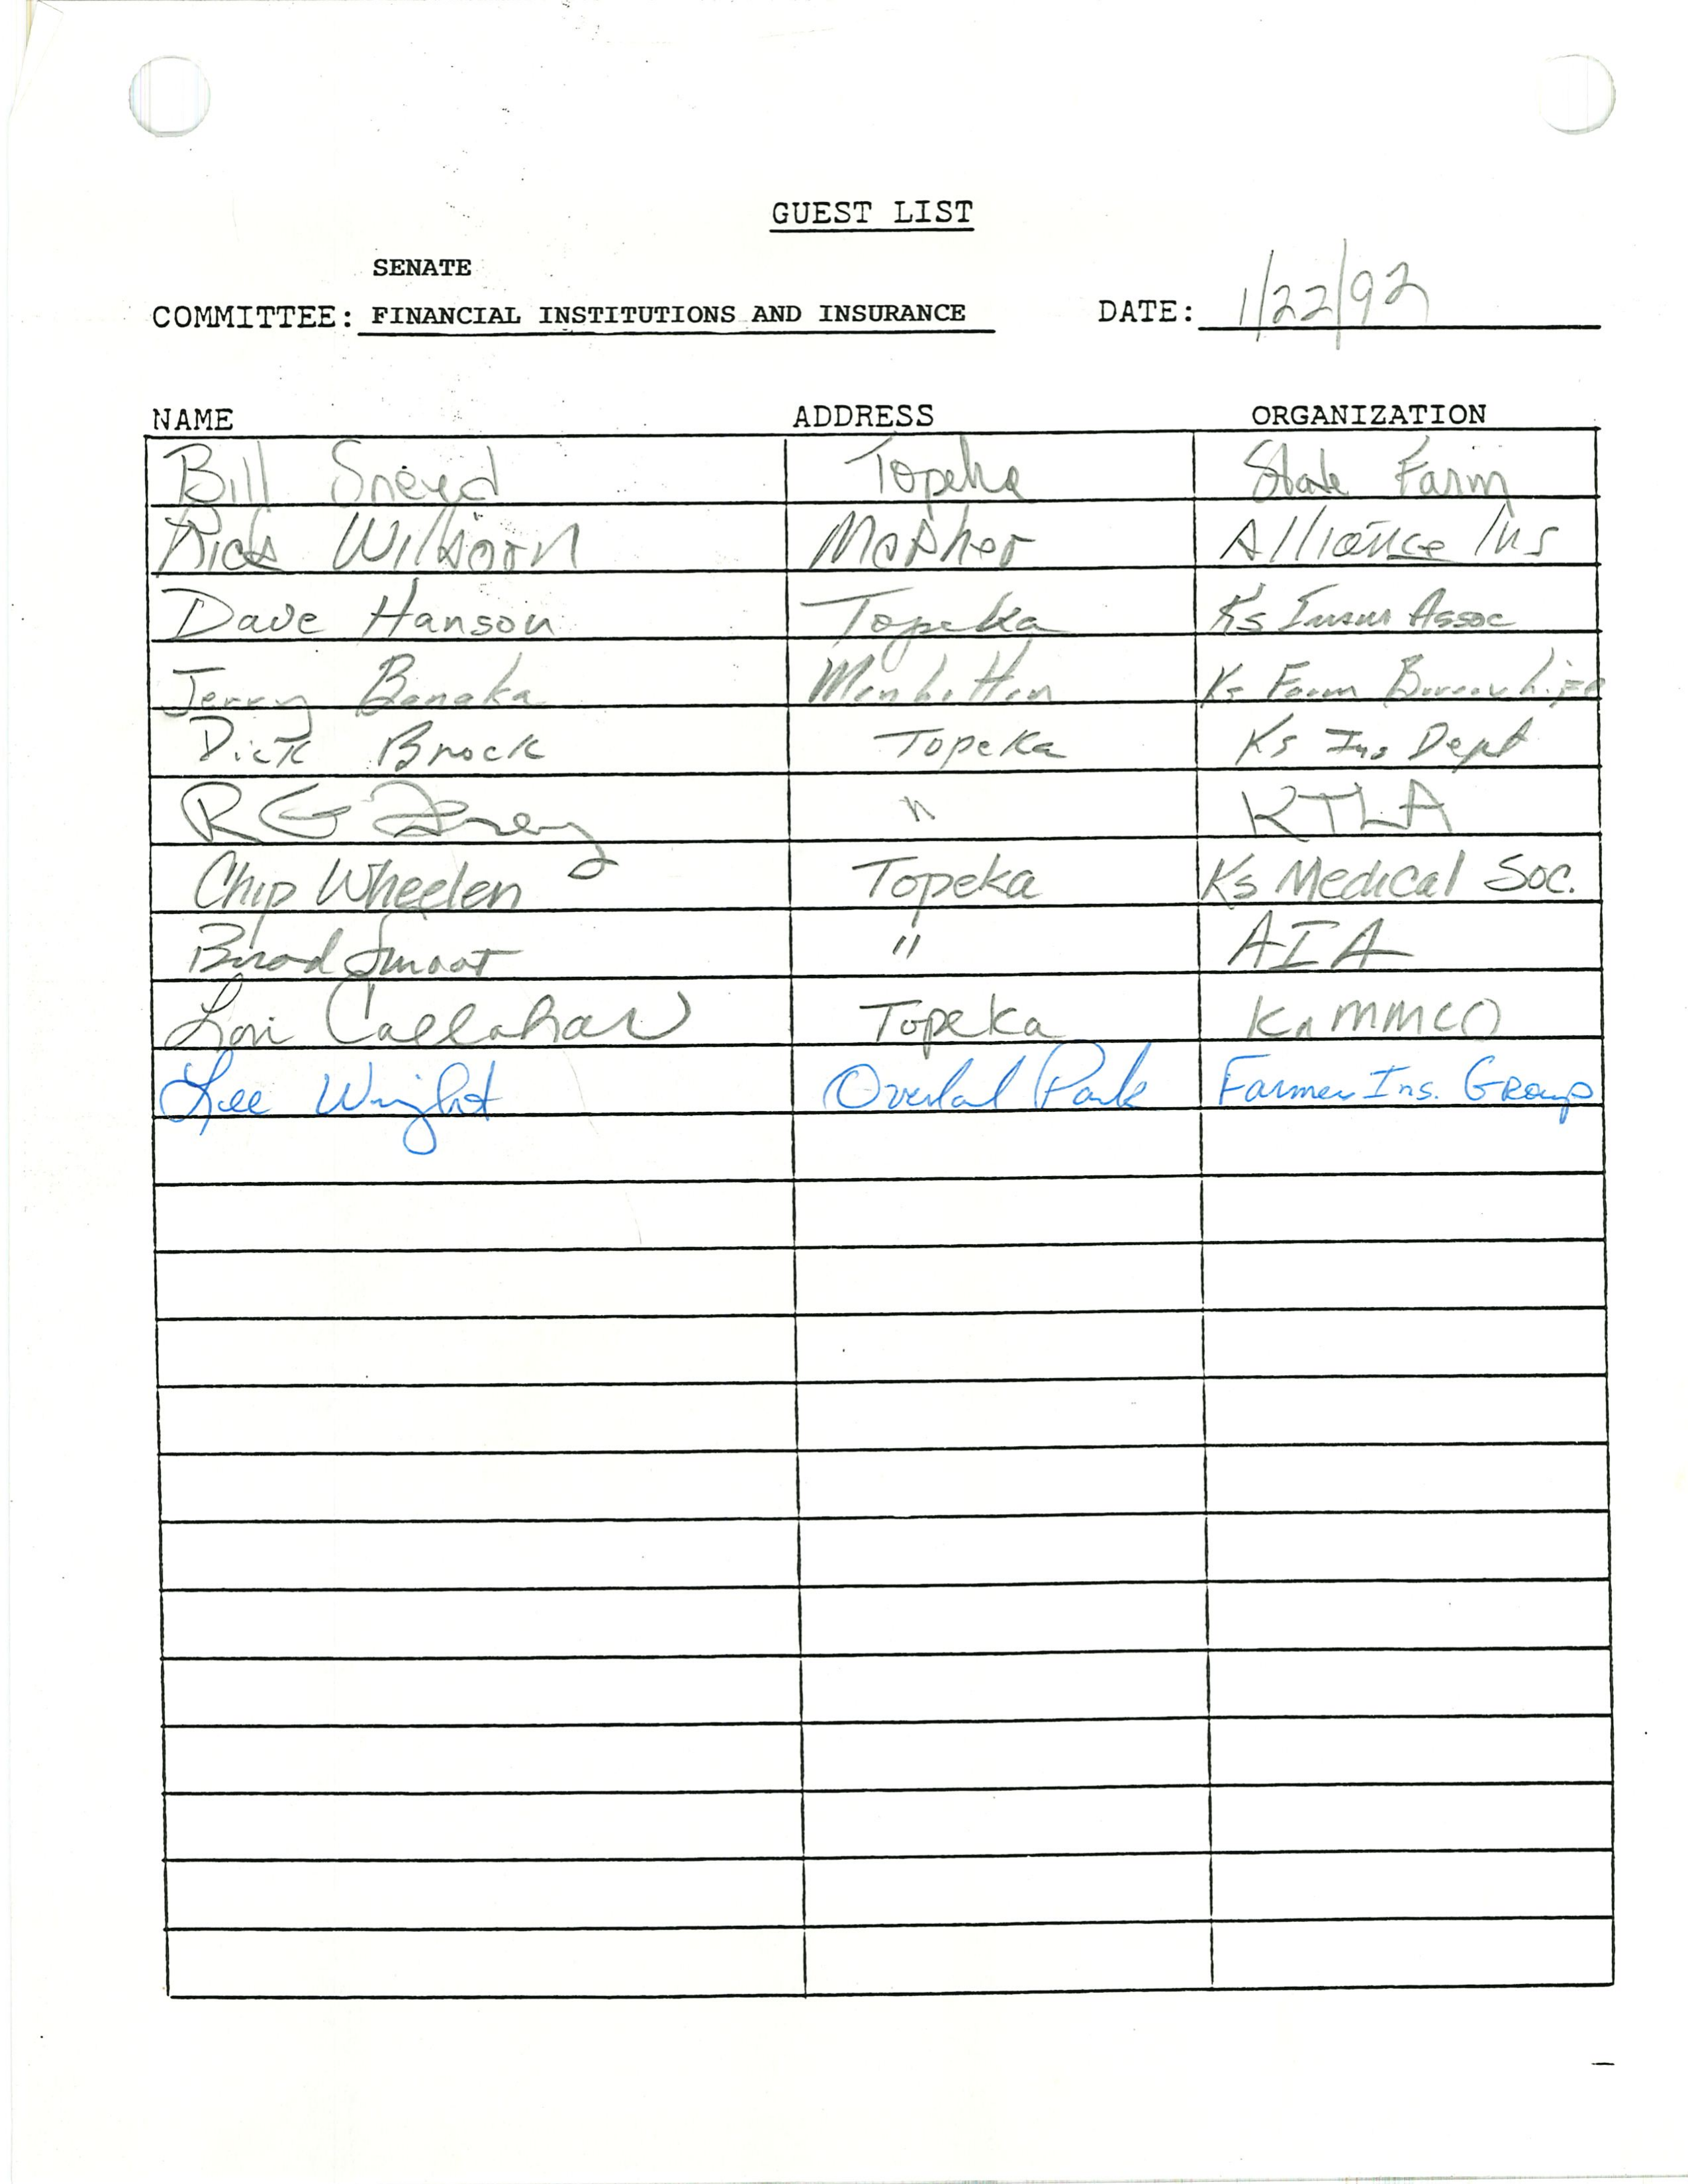 GUEST LIST
SENATE
COMMITTEE: FINANCIAL INSTITUTIONS AND INSURANCE DATE: 1/22/92
NAME ADDRESS ORGANIZATION
Bill Sneed Topeka State Farm
Rick Wilborn McPher Alliance Ins
Dave Hanson Topeka Ks Insur Assoc
Jerry Banaka Manhattan Ks Farm Bureau Life
Dick Brock Topeka Ks Ins Dept
R G Frey " KTLA
Chip Wheelen Topeka Ks Medical Soc.
Brad Smoot " AIA
Lori Callahan Topeka KaMMCO
Lee Wright Overland Park Farmers Ins. Group